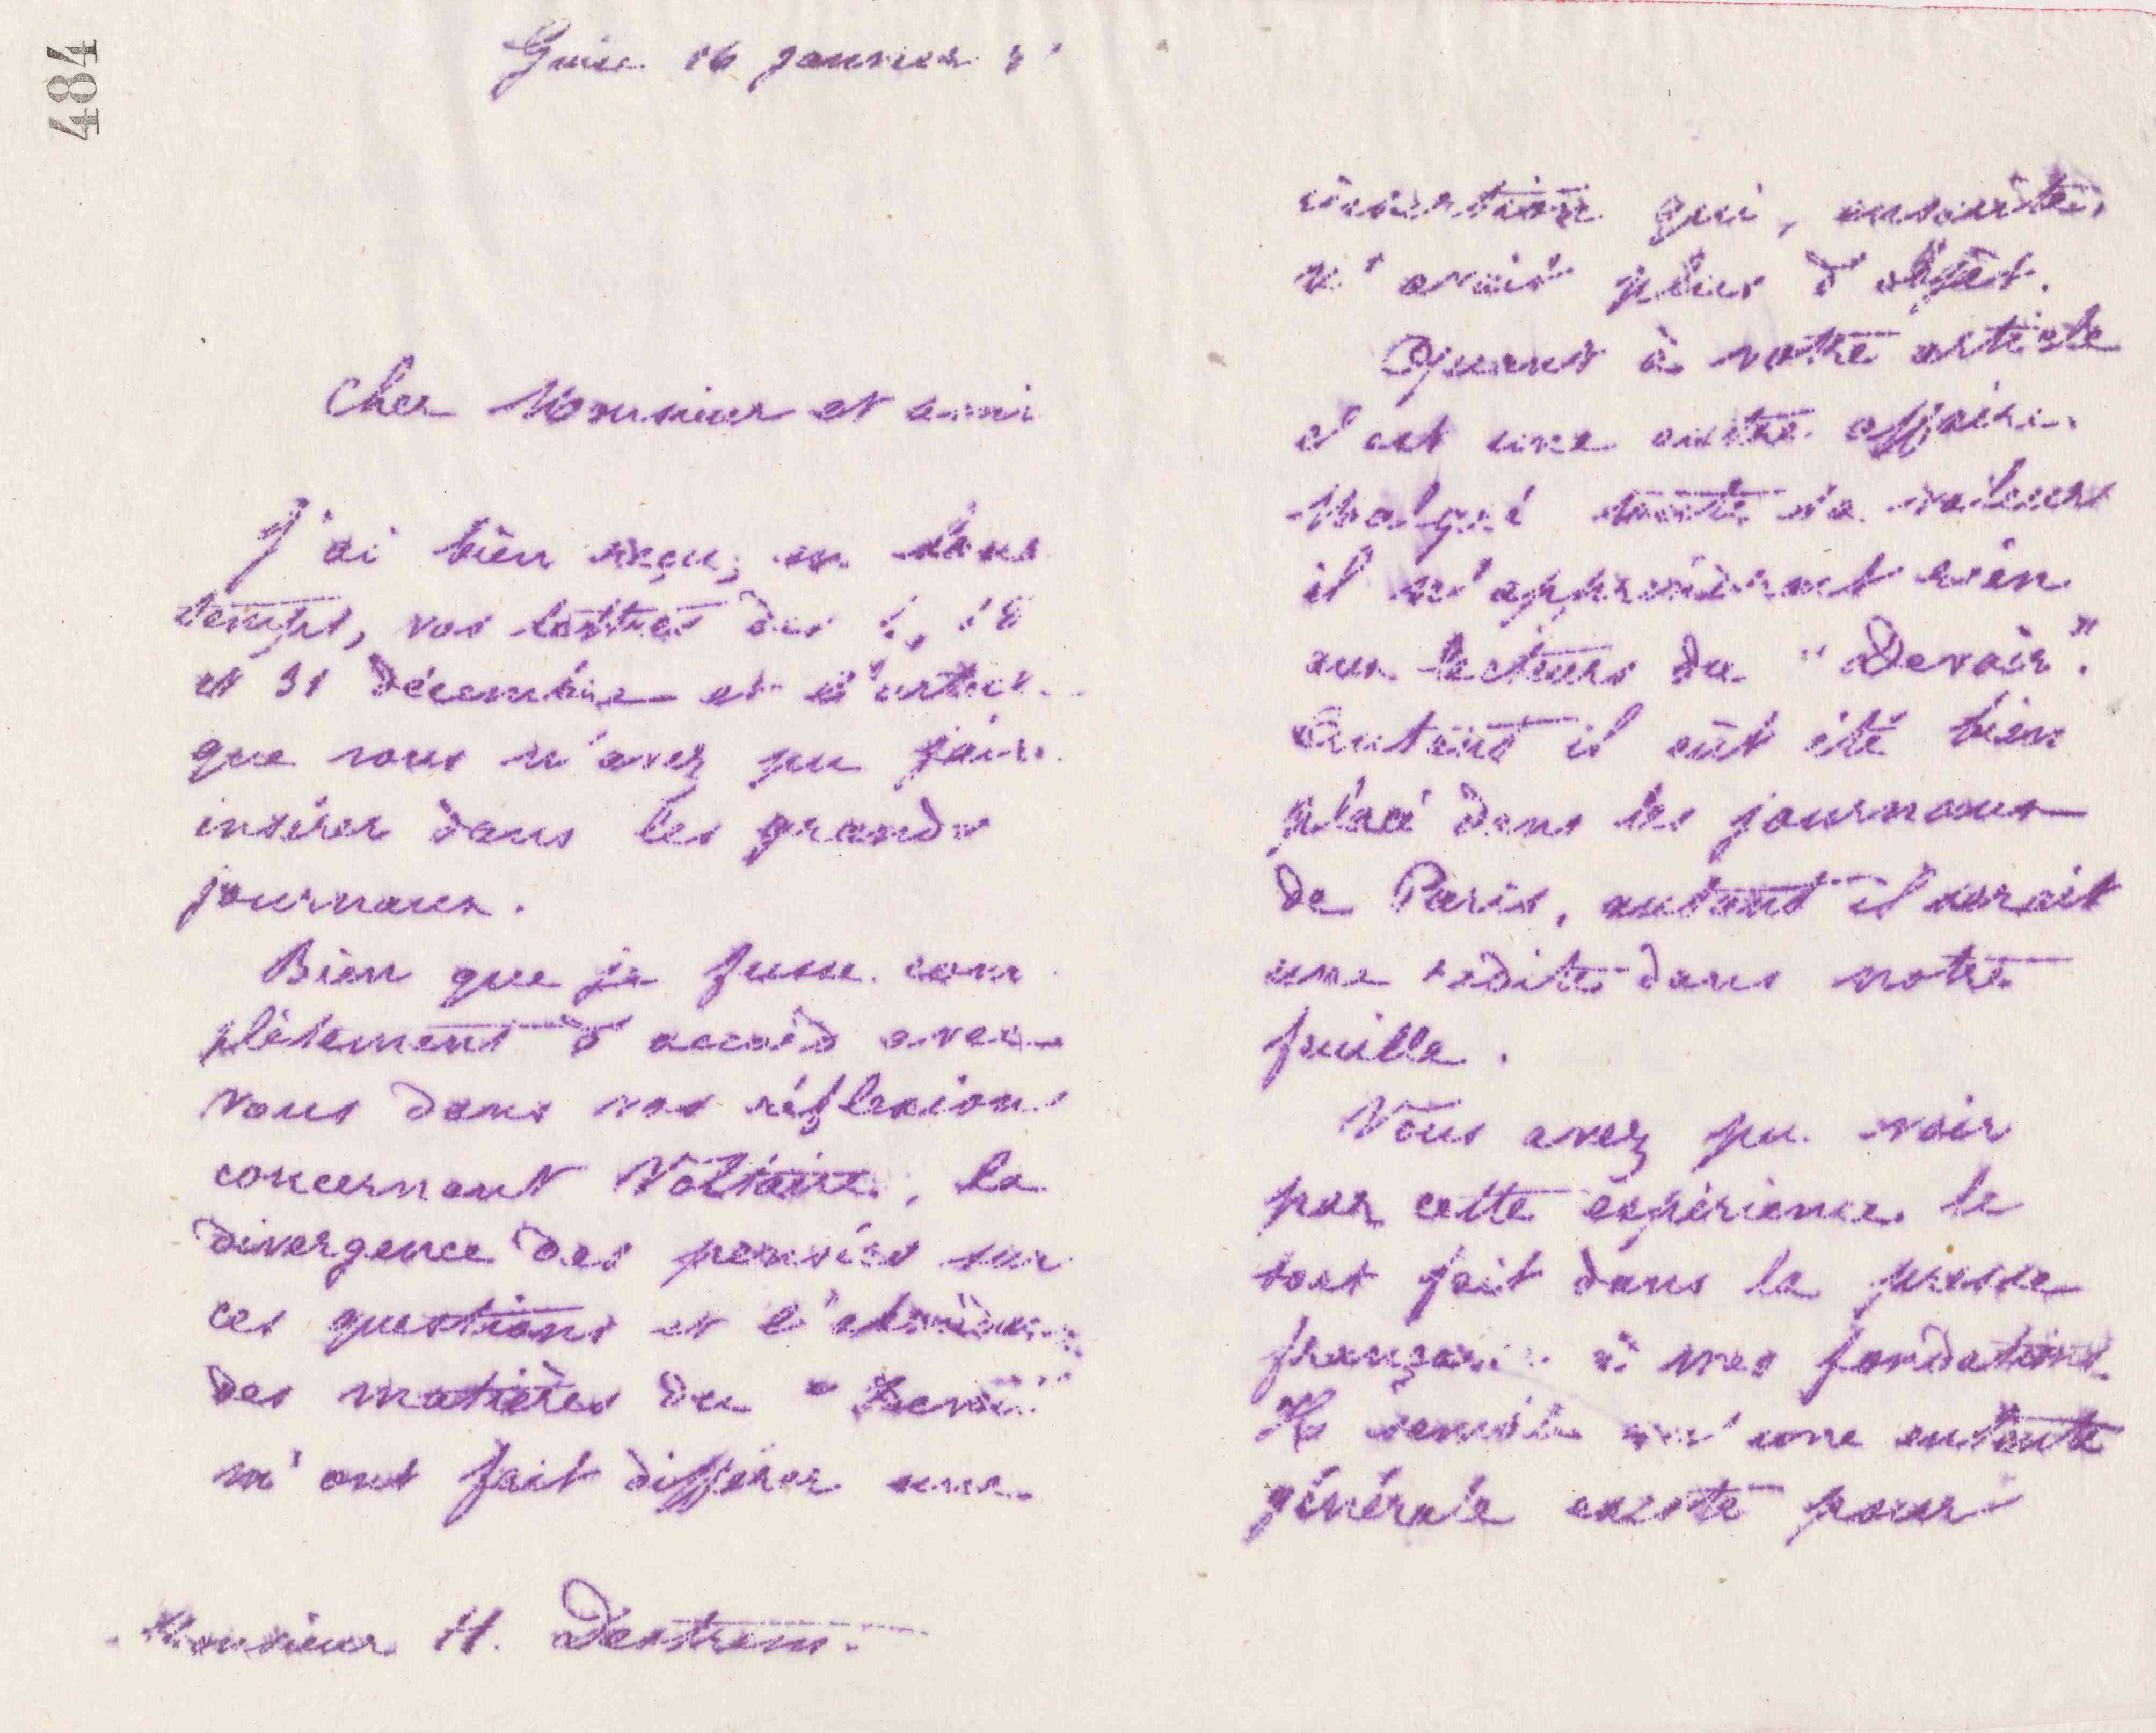 484
Guise 16 janvier
Cher Monsieur et ami
J'ai bien reçu, en
temps, vos lettres des 18
et 31 décembre et l'article
que vous n'avez pu faire
insérer dans les grands
journaux.
Bien que je fusse com
plètement d'accord avec
vous dans vos réflexions
concernant Voltaire, la
divergence des pensées sur
ces questions et l'abondance
des matières du "Devoir"
m'ont fait différer une
Monsieur H. Destrem.
insertion qui, ensuite,
n'avait plus d'objet.
Quant à votre article
c'est une autre affaire.
Malgré toute sa valeur
il n'apprendrait rien
aux lecteurs du "Devoir".
Autant il eût été bien
placé dans les journaux
de Paris, autant il serait
une redite dans notre
feuille.
Vous avez pu voir
par cette expérience le
sort fait dans la presse
française à mes fondations.
Il semble qu'une entente
générale existe pour